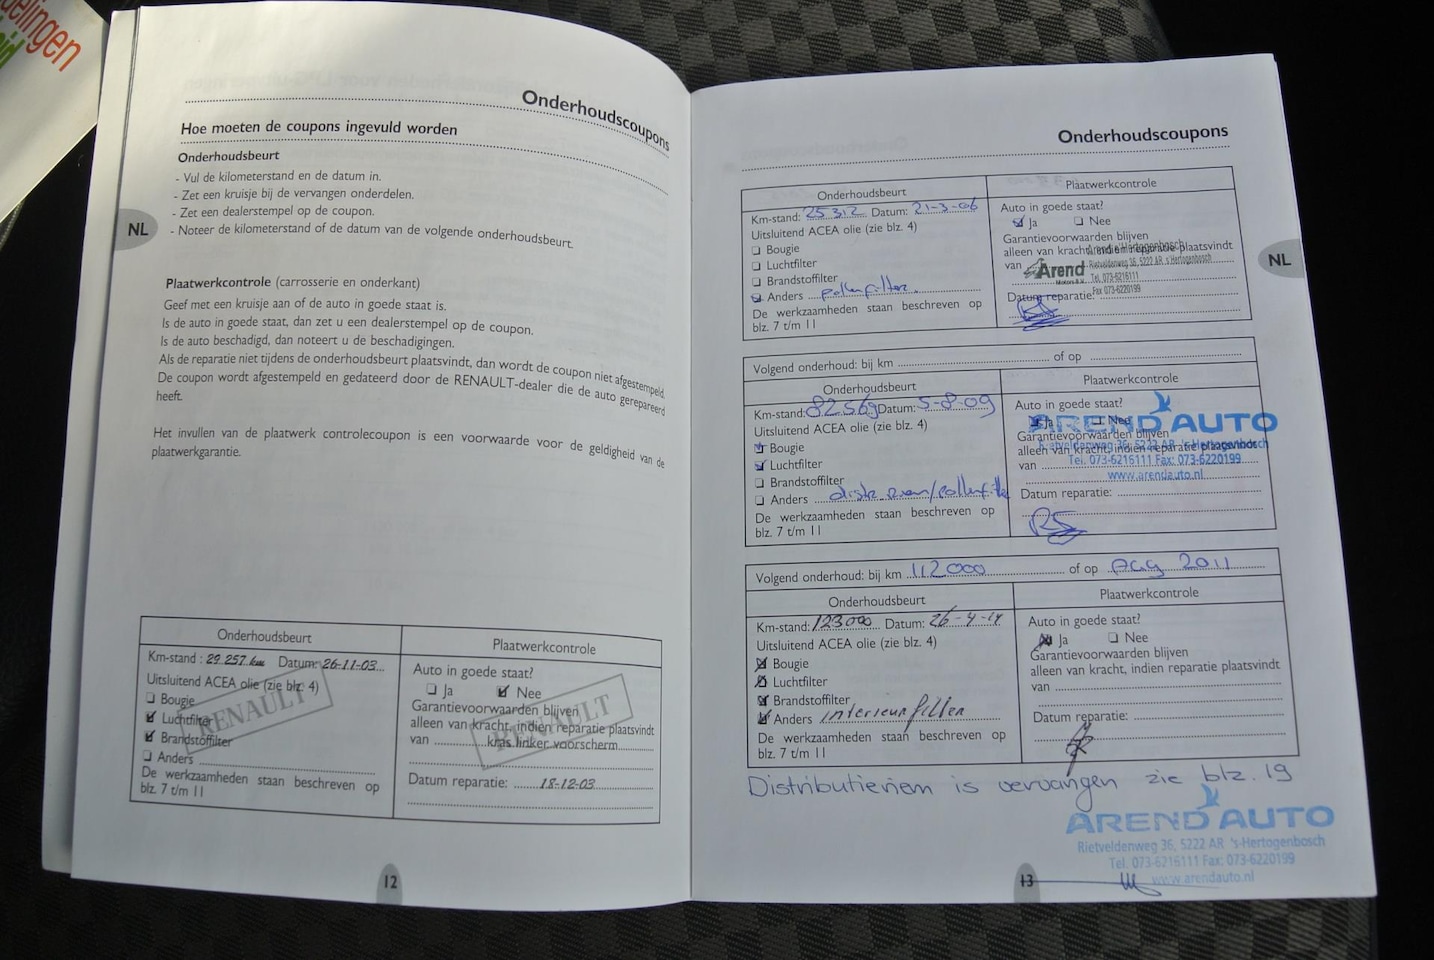 delingen
Onderhoudscoupons
Hoe moeten de coupons ingevuld worden
Onderhoudsbeurt
- Vul de kilometerstand en de datum in.
- Zet een kruisje bij de vervangen onderdelen.
- Zet een dealerstempel op de coupon.
- Noteer de kilometerstand of de datum van de volgende onderhoudsbeurt.
NL
Plaatwerkcontrole (carrosserie en onderkant)
Geef met een kruisje aan of de auto in goede staat is.
Is de auto in goede staat, dan zet u een dealerstempel op de coupon.
Is de auto beschadigd, dan noteert u de beschadigingen.
Als de reparatie niet tijdens de onderhoudsbeurt plaatsvindt, dan wordt de coupon niet afgestempeld.
De coupon wordt afgestempeld en gedateerd door de RENAULT-dealer die de auto gerepareerd
heeft.
Het invullen van de plaatwerk controlecoupon is een voorwaarde voor de geldigheid van de
plaatwerkgarantie.
Onderhoudsbeurt
Km-stand : 29 257 km Datum: 26-11-03
Uitsluitend ACEA olie (zie blz. 4)
Bougie
Luchtfilter
Brandstoffilter
Anders
De werkzaamheden staan beschreven op
blz. 7 t/m 11
RENAULT
Plaatwerkcontrole
Auto in goede staat?
Ja Nee
Garantievoorwaarden blijven
alleen van kracht, indien reparatie plaatsvindt
van kras linker voorscherm
Datum reparatie: 18-12-03
RENAULT
12
Onderhoudscoupons
Onderhoudsbeurt
Km-stand: 25 312 Datum: 21-3-06
Uitsluitend ACEA olie (zie blz. 4)
Bougie
Luchtfilter
Brandstoffilter
Anders pollenfilter.
De werkzaamheden staan beschreven op
blz. 7 t/m 11
Plaatwerkcontrole
Auto in goede staat?
Ja Nee
Garantievoorwaarden blijven
alleen van kracht, indien reparatie plaatsvindt
van
Arend
Motors B.V.
Arend 's-Hertogenbosch
Rietveldenweg 36, 5222 AR 's Hertogenbosch
Tel. 073-6216111
Fax 073-6220199
Datum reparatie:
NL
Volgend onderhoud: bij km of op
Onderhoudsbeurt
Km-stand: 82569 Datum: 5-8-09
Uitsluitend ACEA olie (zie blz. 4)
Bougie
Luchtfilter
Brandstoffilter
Anders distr. riem/pollenfilter
De werkzaamheden staan beschreven op
blz. 7 t/m 11
Plaatwerkcontrole
Auto in goede staat?
Ja Nee
Garantievoorwaarden blijven
alleen van kracht, indien reparatie plaatsvindt
van
AREND AUTO
Rietveldenweg 36, 5222 AR 's-Hertogenbosch
Tel. 073-6216111 Fax: 073-6220199
www.arendauto.nl
Datum reparatie:
Volgend onderhoud: bij km 112000 of op Aug 2011
Onderhoudsbeurt
Km-stand: 123000 Datum: 26-4-14
Uitsluitend ACEA olie (zie blz. 4)
Bougie
Luchtfilter
Brandstoffilter
Anders interieurfilter
De werkzaamheden staan beschreven op
blz. 7 t/m 11
Plaatwerkcontrole
Auto in goede staat?
Ja Nee
Garantievoorwaarden blijven
alleen van kracht, indien reparatie plaatsvindt
van
Datum reparatie:
Distributieriem is vervangen zie blz. 19
AREND AUTO
Rietveldenweg 36, 5222 AR 's-Hertogenbosch
Tel. 073-6216111 Fax: 073-6220199
www.arendauto.nl
13